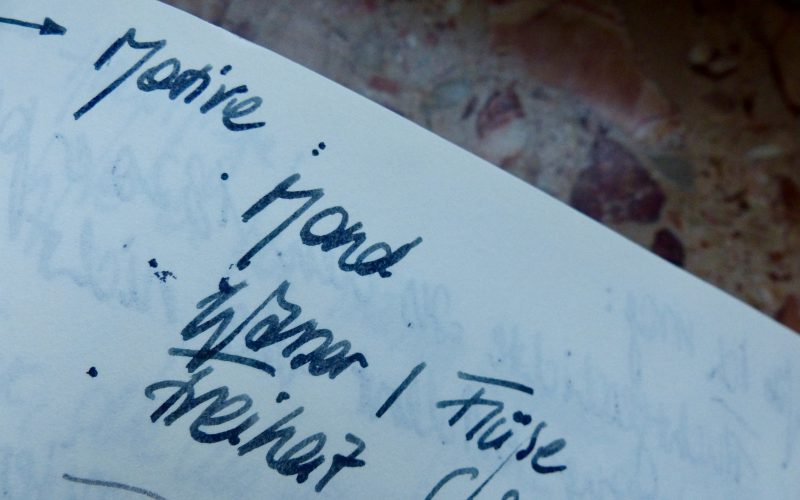 → Motive:
• Mond
• Wasser / Flüße
• Freiheit